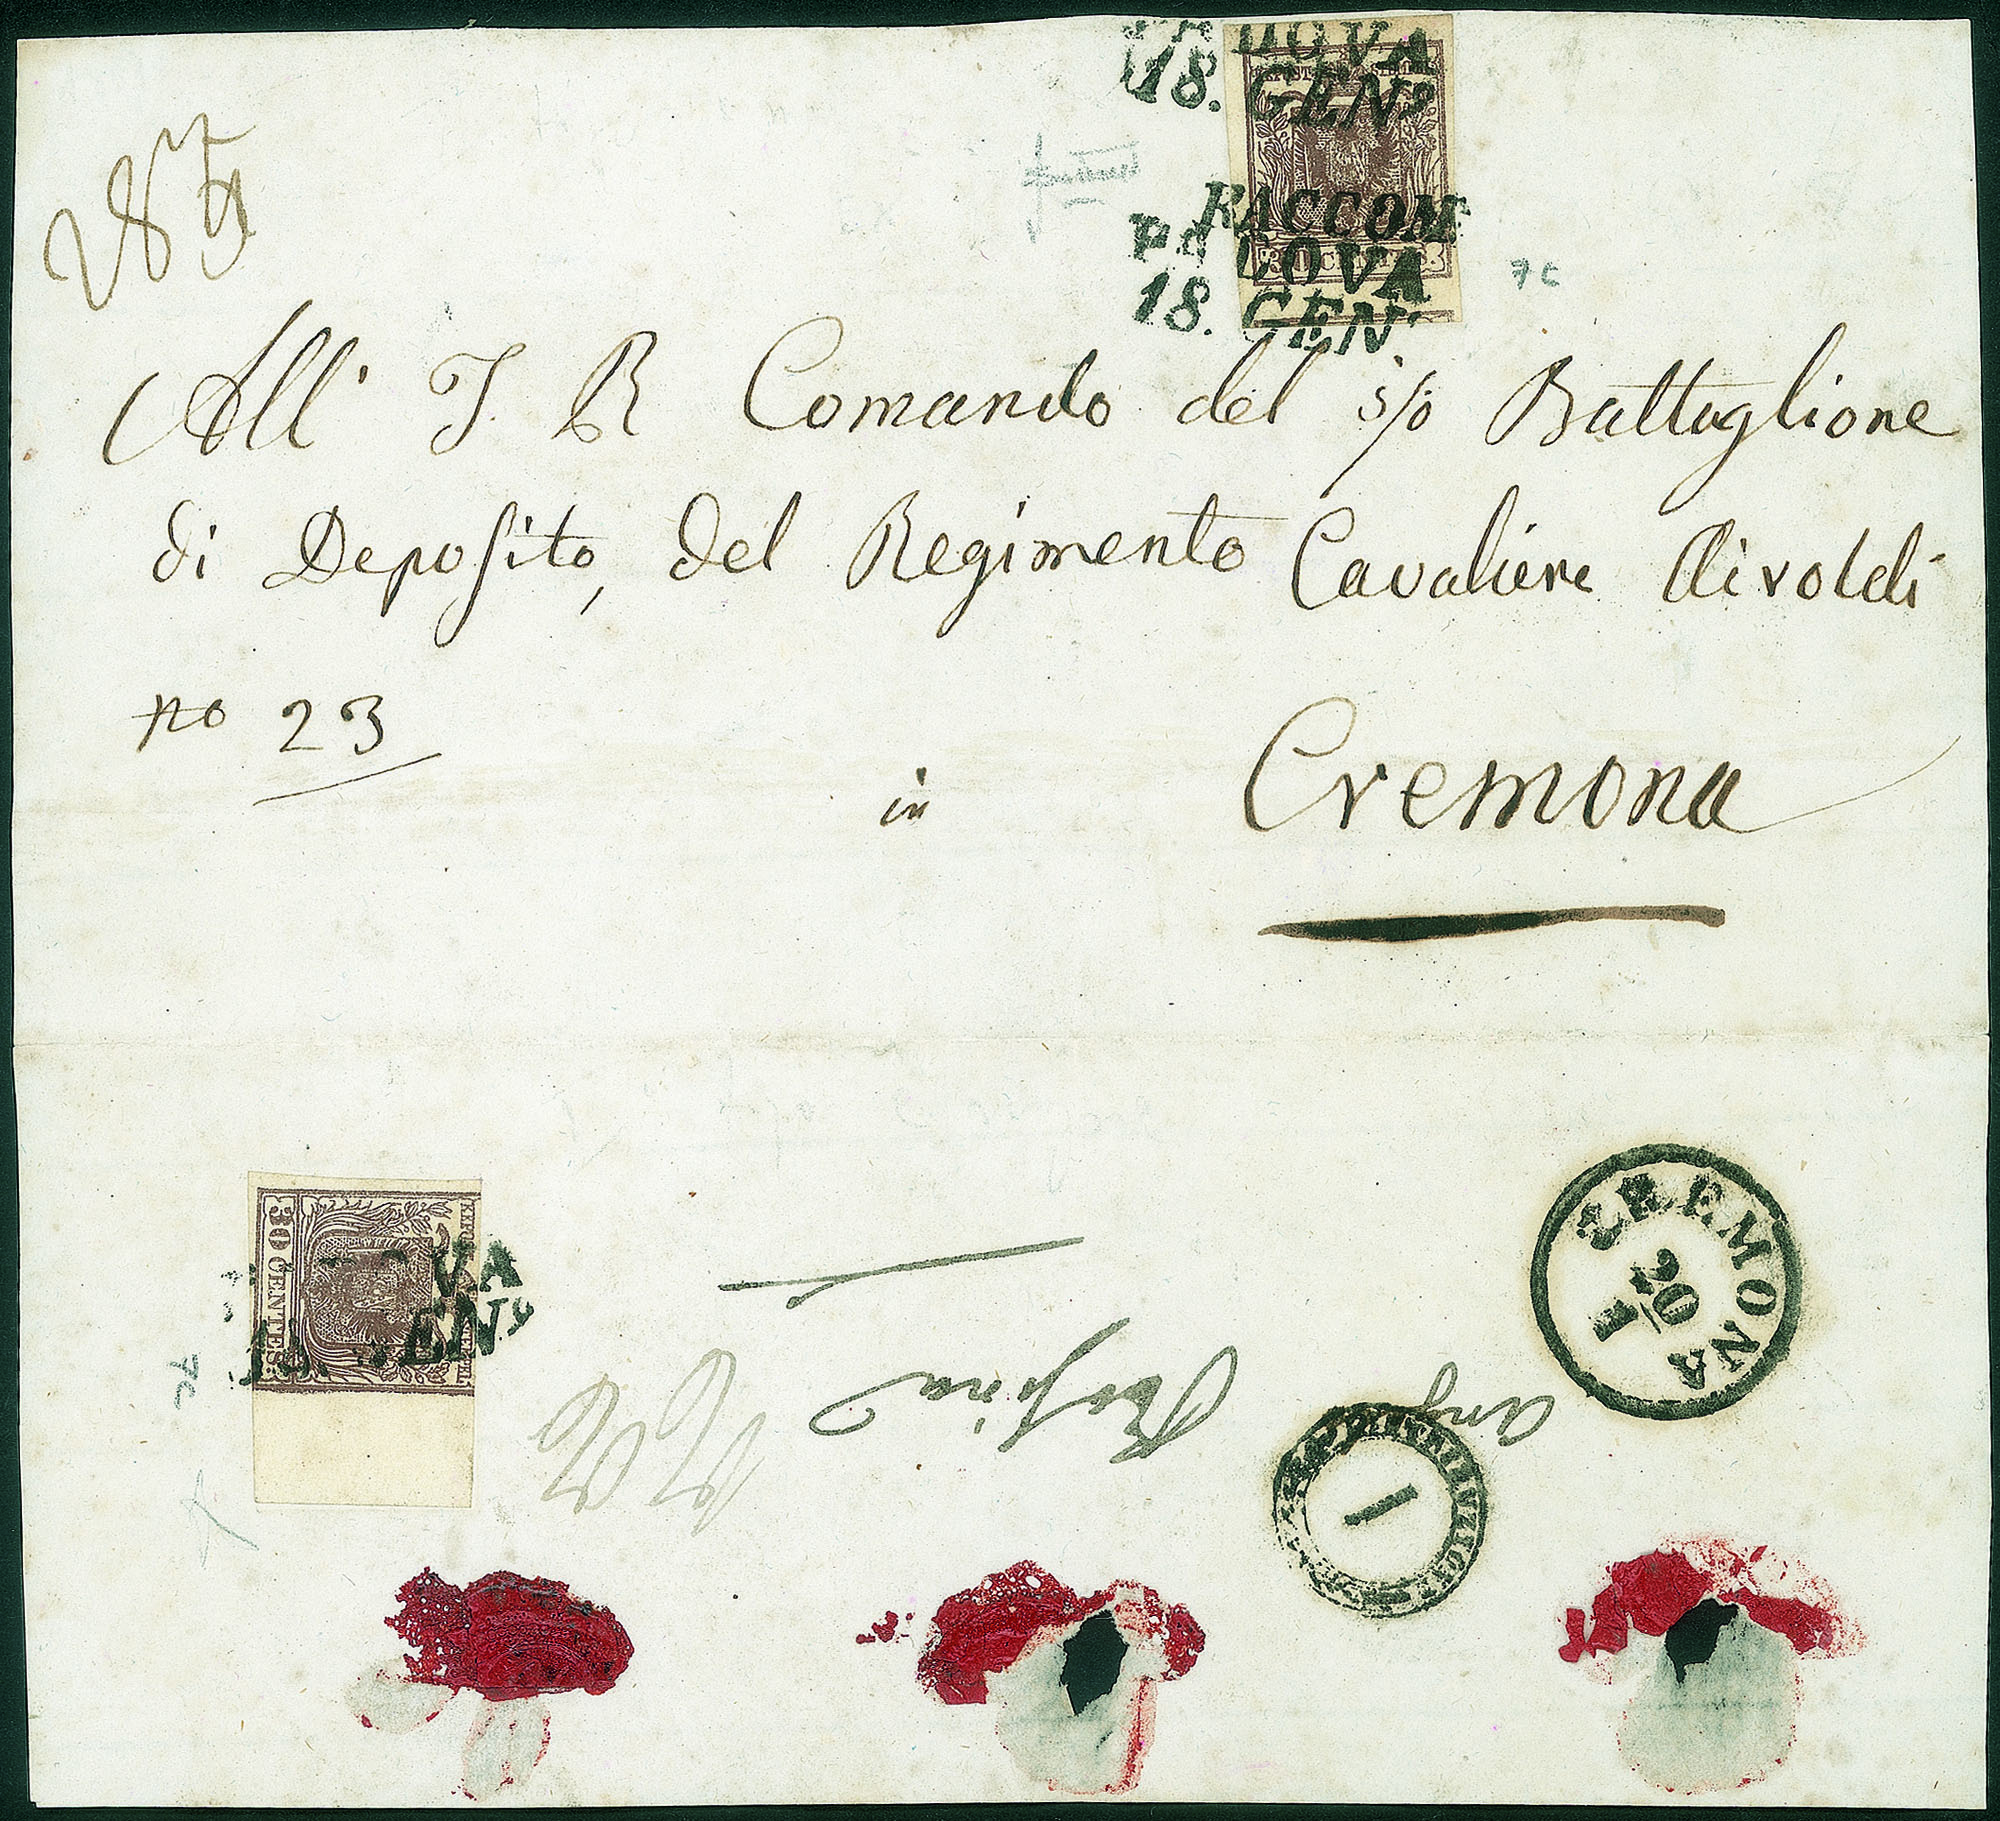 PADOVA
18. GENº
RACCOM
PADOVA
18. GENº
30 CENTES:
All' I R Comando del s/o Battaglione
di Deposito, del Regimento Cavaliere Airoldi
no 23
in Cremona
30 CENTES:
VA
18. GENº
CREMONA
20
1
Rosina
1